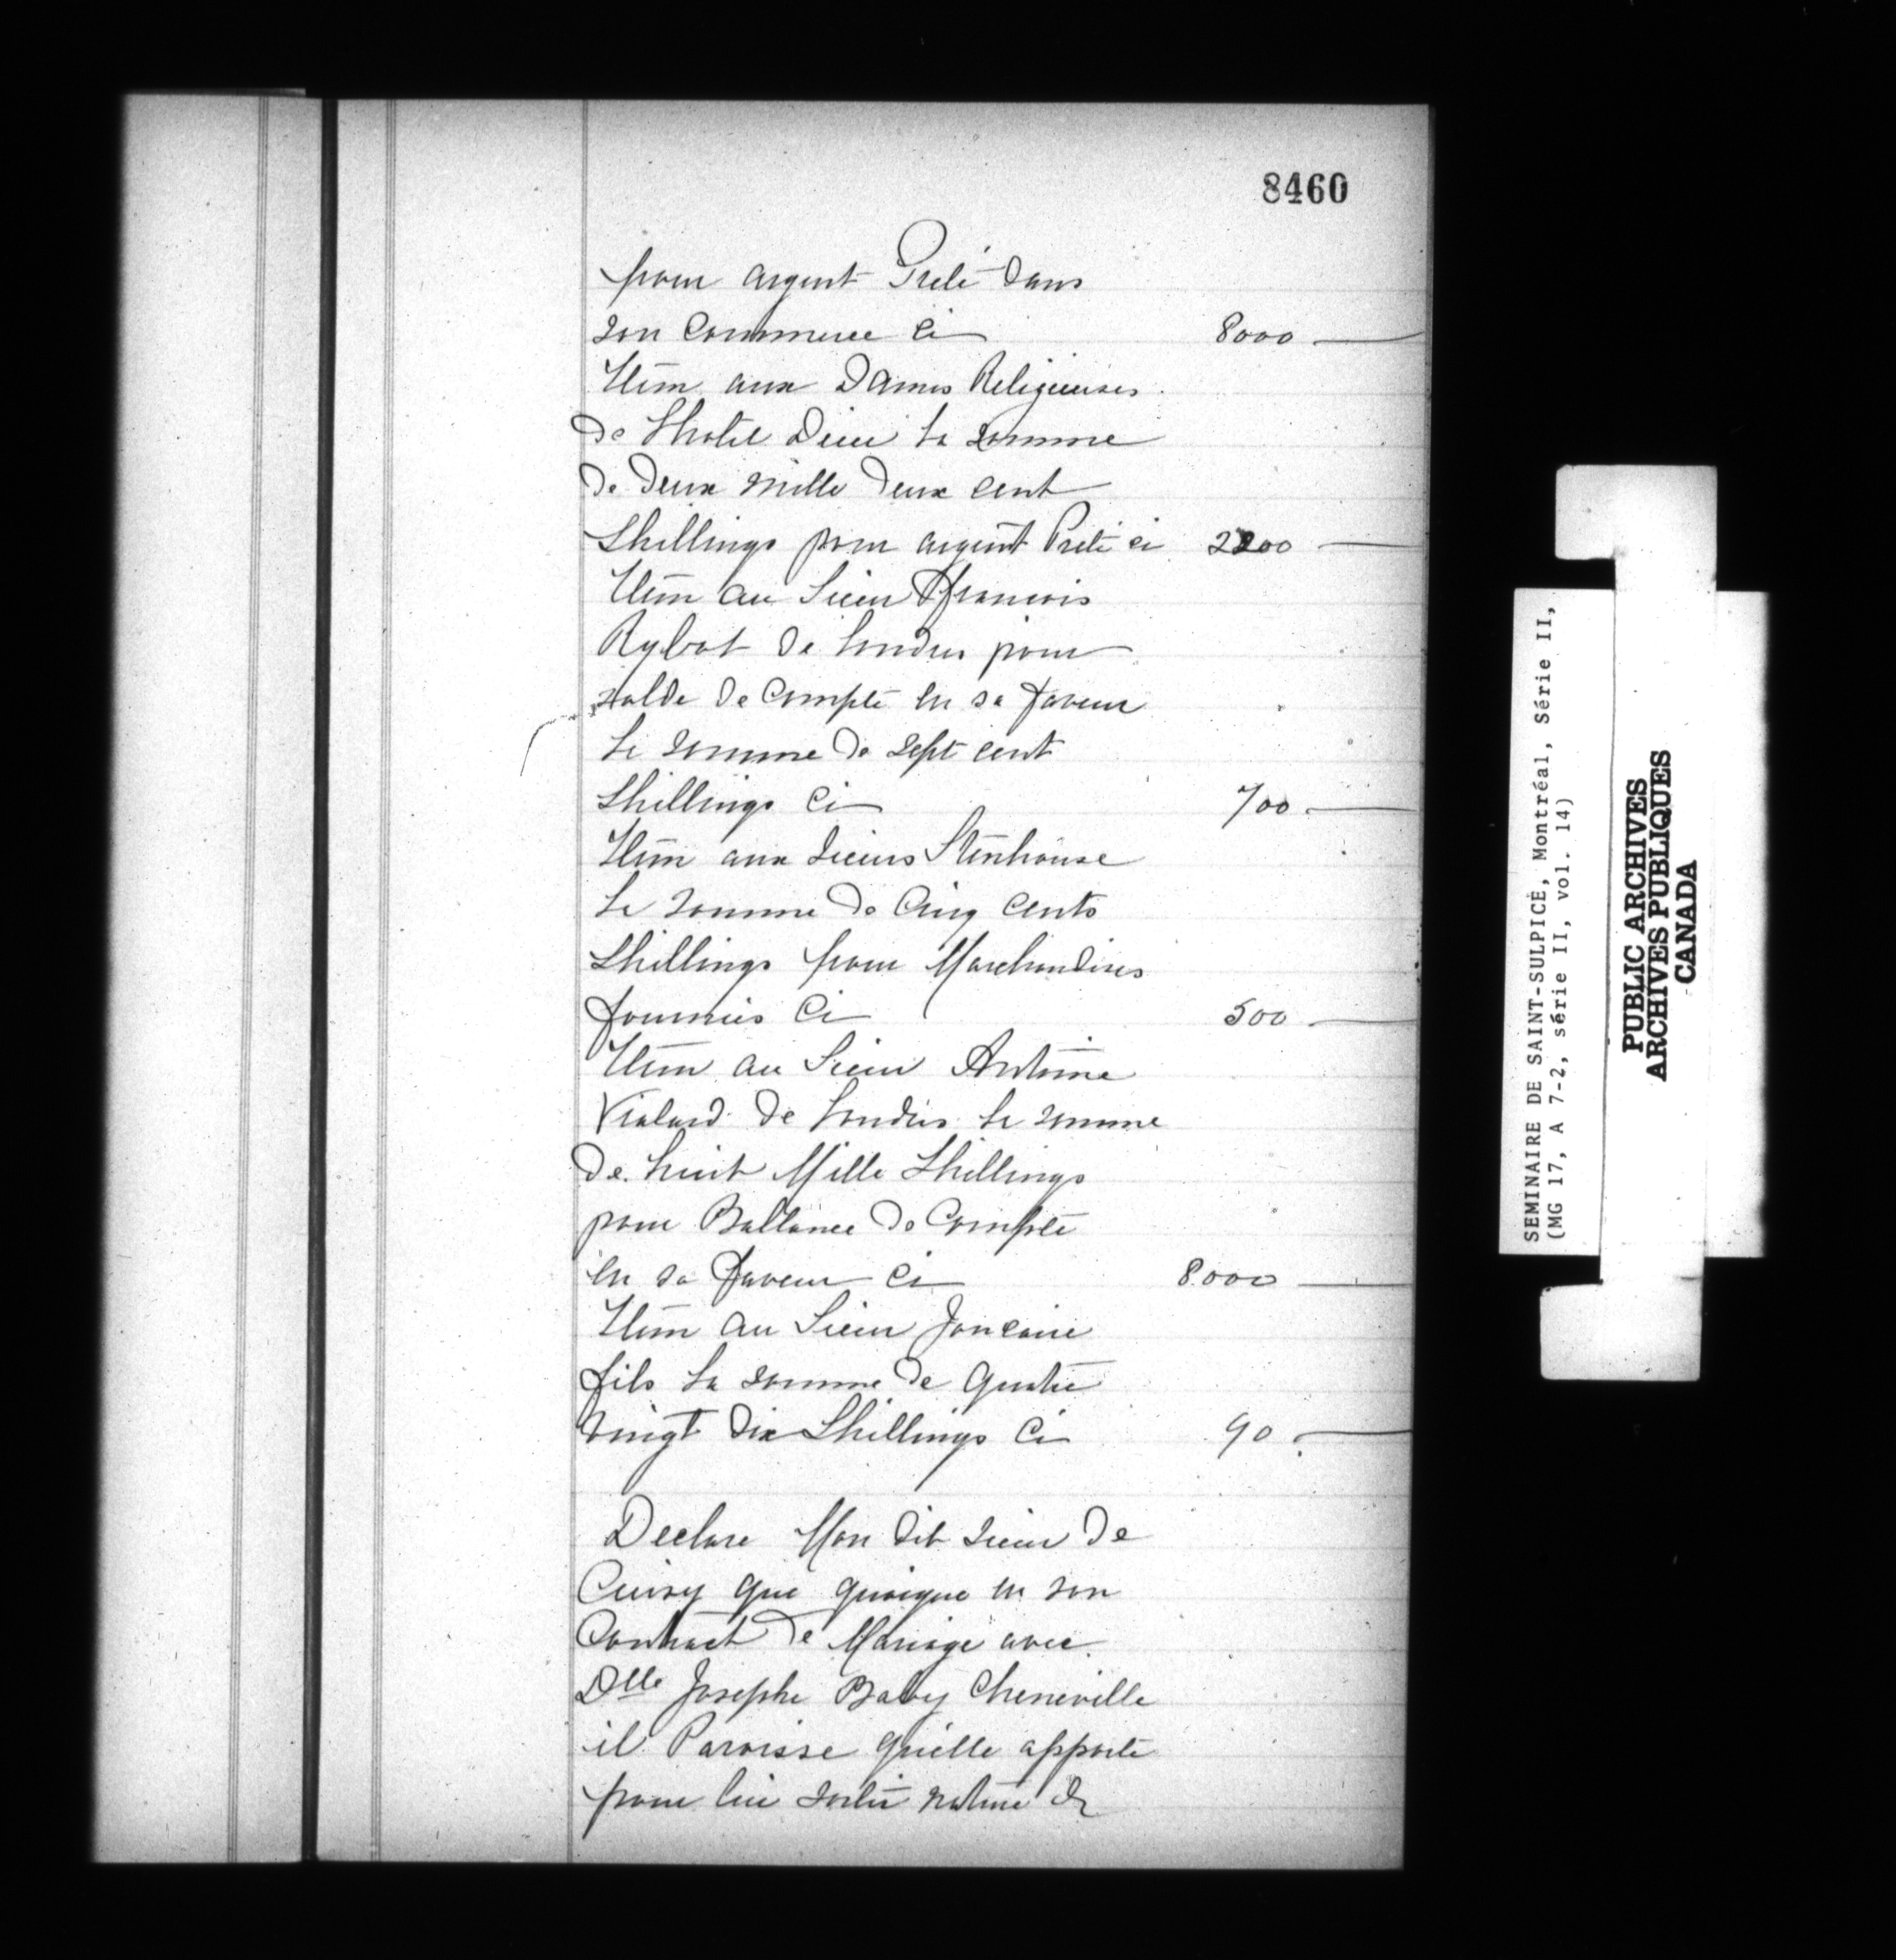 8460
pour argent Preté dans
son Commerce Ci 8000
Item aux Dames Religieuses
de Lhotel Dieu la somme
de deux mille deux cent
Shillings pour argent Preté ci 2200
Item au Sieur François
Rybot de Londres pour
solde de Compte en sa faveur
la somme de sept cent
Shillings Ci 700
Item aux Sieurs Stenhouse
la somme de Cinq Cents
Shillings pour Marchandises
fournies Ci 500
Item au Sieur Antoine
Vialard de Londres la somme
de huit Mille Shillings
pour Ballance de Compte
en sa faveur Ci 8000
Item au Sieur Joncaire
fils la somme de quatre
vingt dix Shillings Ci 90
Declare Mon dit Sieur de
Cuisy que quoique en son
Contract de Mariage avec
Dlle Josephe Baby Cheneville
il Paroisse qu'elle apporte
pour lui sortir nature de
SEMINAIRE DE SAINT-SULPICE, Montréal, Série II,
(MG 17, A 7-2, série II, vol. 14)
PUBLIC ARCHIVES
ARCHIVES PUBLIQUES
CANADA